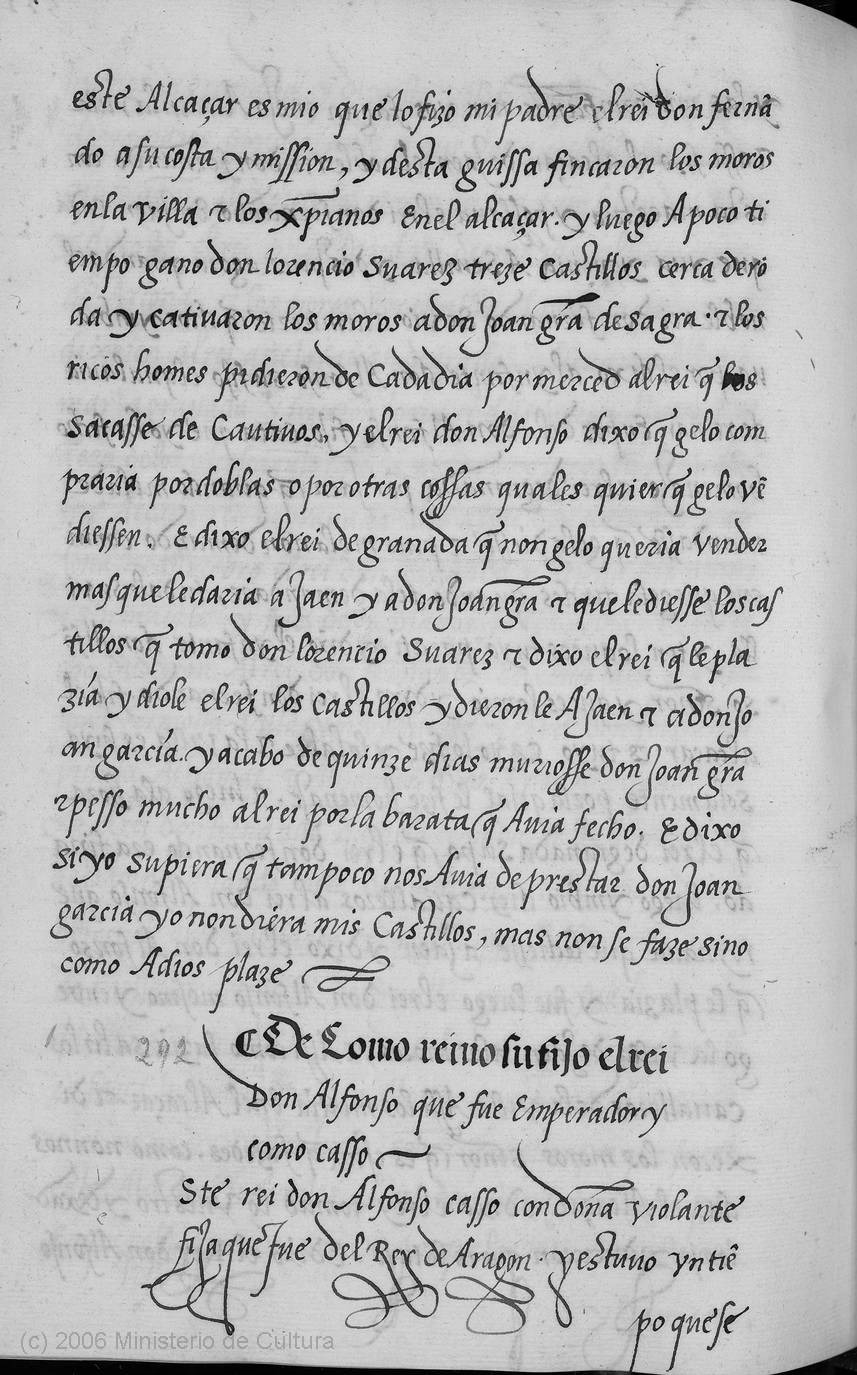 este Alcaçar es mio que lo fizo mi padre el rei don fernã
do a su costa y mission, y desta guissa fincaron los moros
en la villa τ los xp̃ianos En el alcaçar. y luego A poco ti
empo gano don lorencio Suarez treze Castillos cerca de rõ
da y cativaron los moros a don Joan gr̃a de sagra · τ los
ricos homes pidieron de Cada dia por merced al rei q̃ los
Sacasse de Cautivos, y el rei don Alfonso dixo q̃ gelo com
praria por doblas o por otras cossas quales quier q̃ gelo vẽ
diessen. E dixo el rei de granada q̃ non gelo queria vender
mas que le daria a Jaen y a don Joan gr̃a τ que le diesse los cas
tillos q̃ tomo don lorencio Suarez τ dixo el rei q̃ le pla
zía y diole el rei los Castillos y dieron le A Jaen τ a don Jo
an garcía. y acabo de quinze dias muriosse don Joan gr̃a
τ pesso mucho al rei por la barata q̃ Avia fecho. E dixo
si yo supiera q̃ tam poco nos Avia de prestar don Joan
garcia yo non diera mis Castillos, mas non se faze sino
como A dios plaze
292
De Como reino su fijo el rei
Don Alfonso que fue Emperador y
como casso
Ste rei don Alfonso casso con doña violante
fija que fue del Rey de Aragon · y estuvo yn tiẽ
po que se
(c) 2006 Ministerio de Cultura